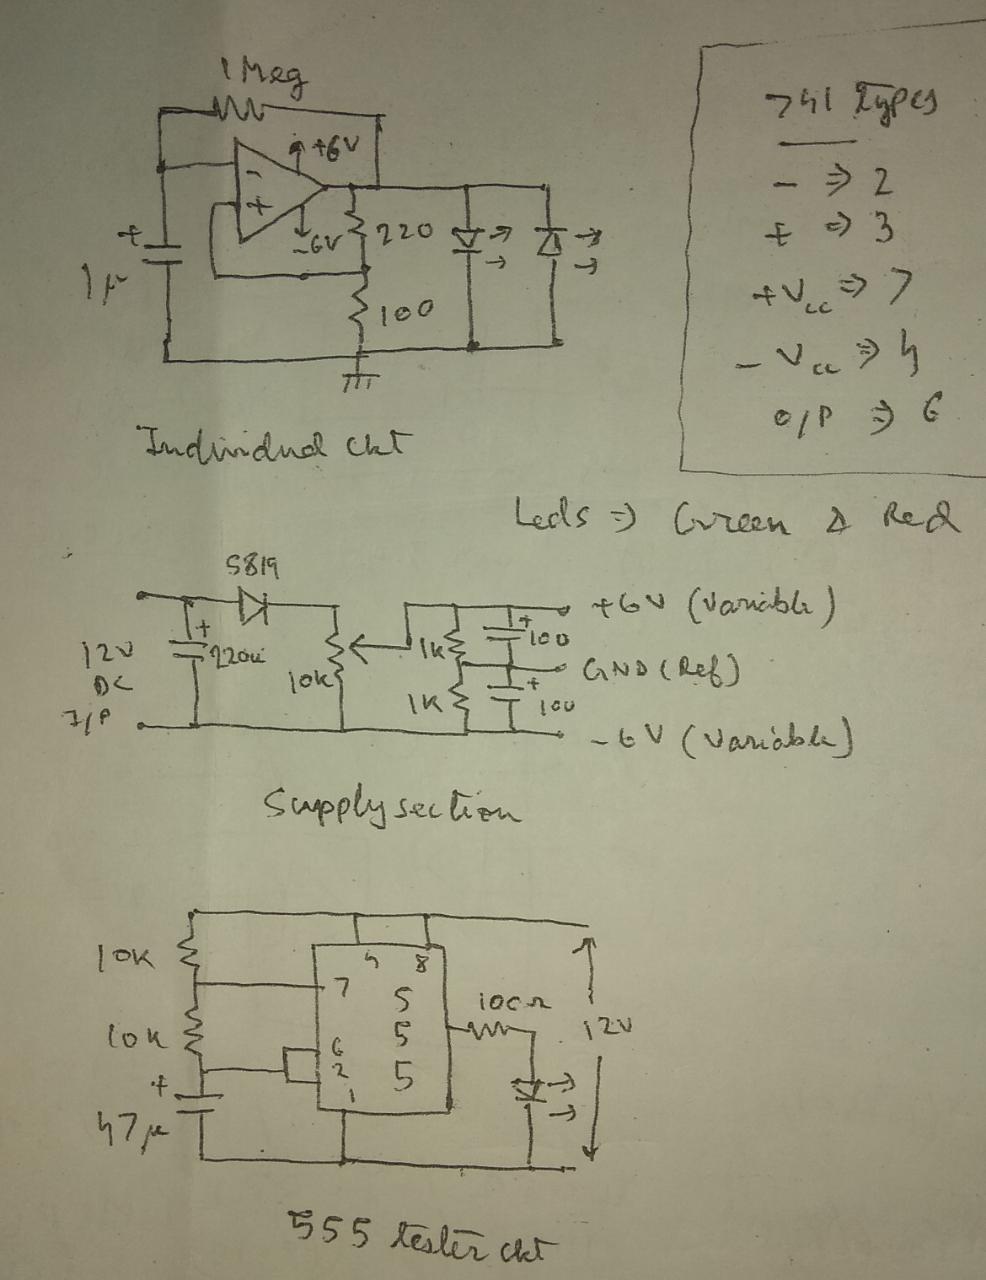 1 Meg
- +6V
+ -6V 220
+
1μ
100
Individual ckt
741 Types
- ⇒ 2
+ ⇒ 3
+Vcc ⇒ 7
- Vcc ⇒ 4
O/P ⇒ 6
Leds ⇒ Green & Red
5819
12V
DC
I/P
+
220u
10K
1K
1K
+
100
+
100
+6V (Variable)
GND (Ref)
-6V (Variable)
Supply section
10K
10K
+
47μ
4 8
7
6
2
1
5
5
5
100Ω
12V
555 tester ckt